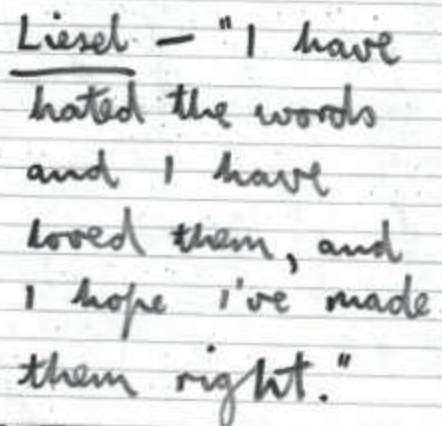 Liesel - "I have
hated the words
and I have
loved them, and
I hope i've made
them right."